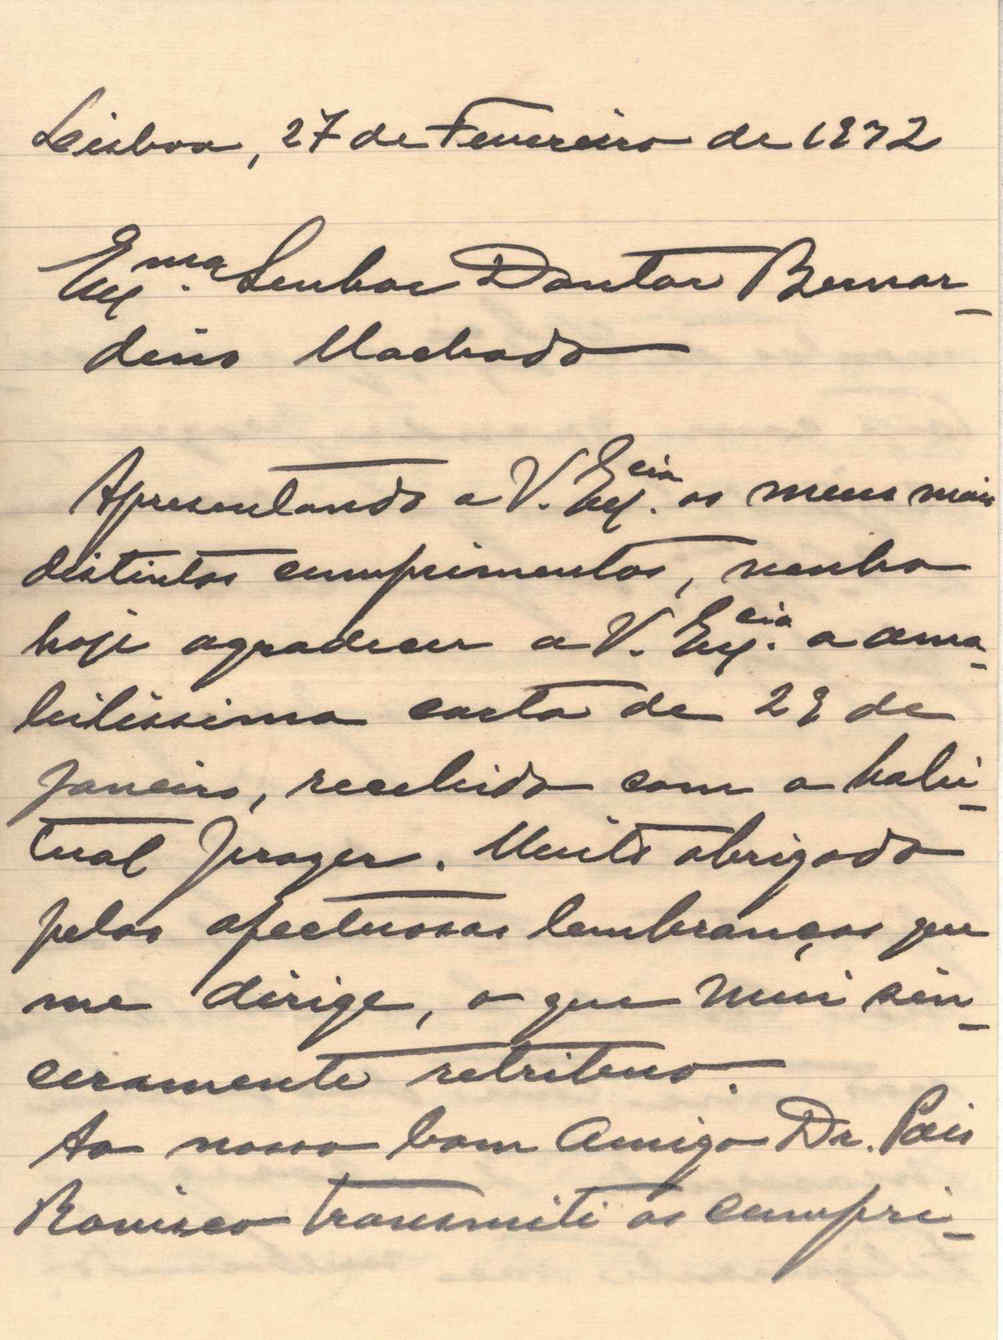 Lisboa, 27 de Fevereiro de 1932
Exma. Senhor Doutor Bernar-
dino Machado
Apresentando a V. Excia. os meus mais
distintos cumprimentos, venho
hoje agradecer a V. Excia. a ama-
bilissima carta de 29 de
Janeiro, recebida com o habi-
tual prazer. Muito obrigado
pelas afectuosas lembranças que
me dirige, o que mui sin-
ceramente retribuo.
Ao nosso bom Amigo Dr. Pais
Rovisco transmiti os cumpri-